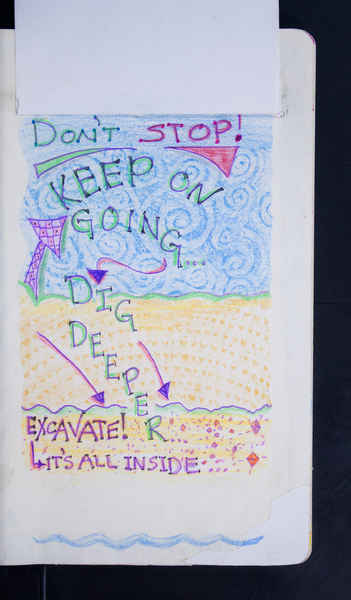 DON'T STOP!
KEEP ON
GOING...
DIG
DEEPER
EXCAVATE!
IT'S ALL INSIDE